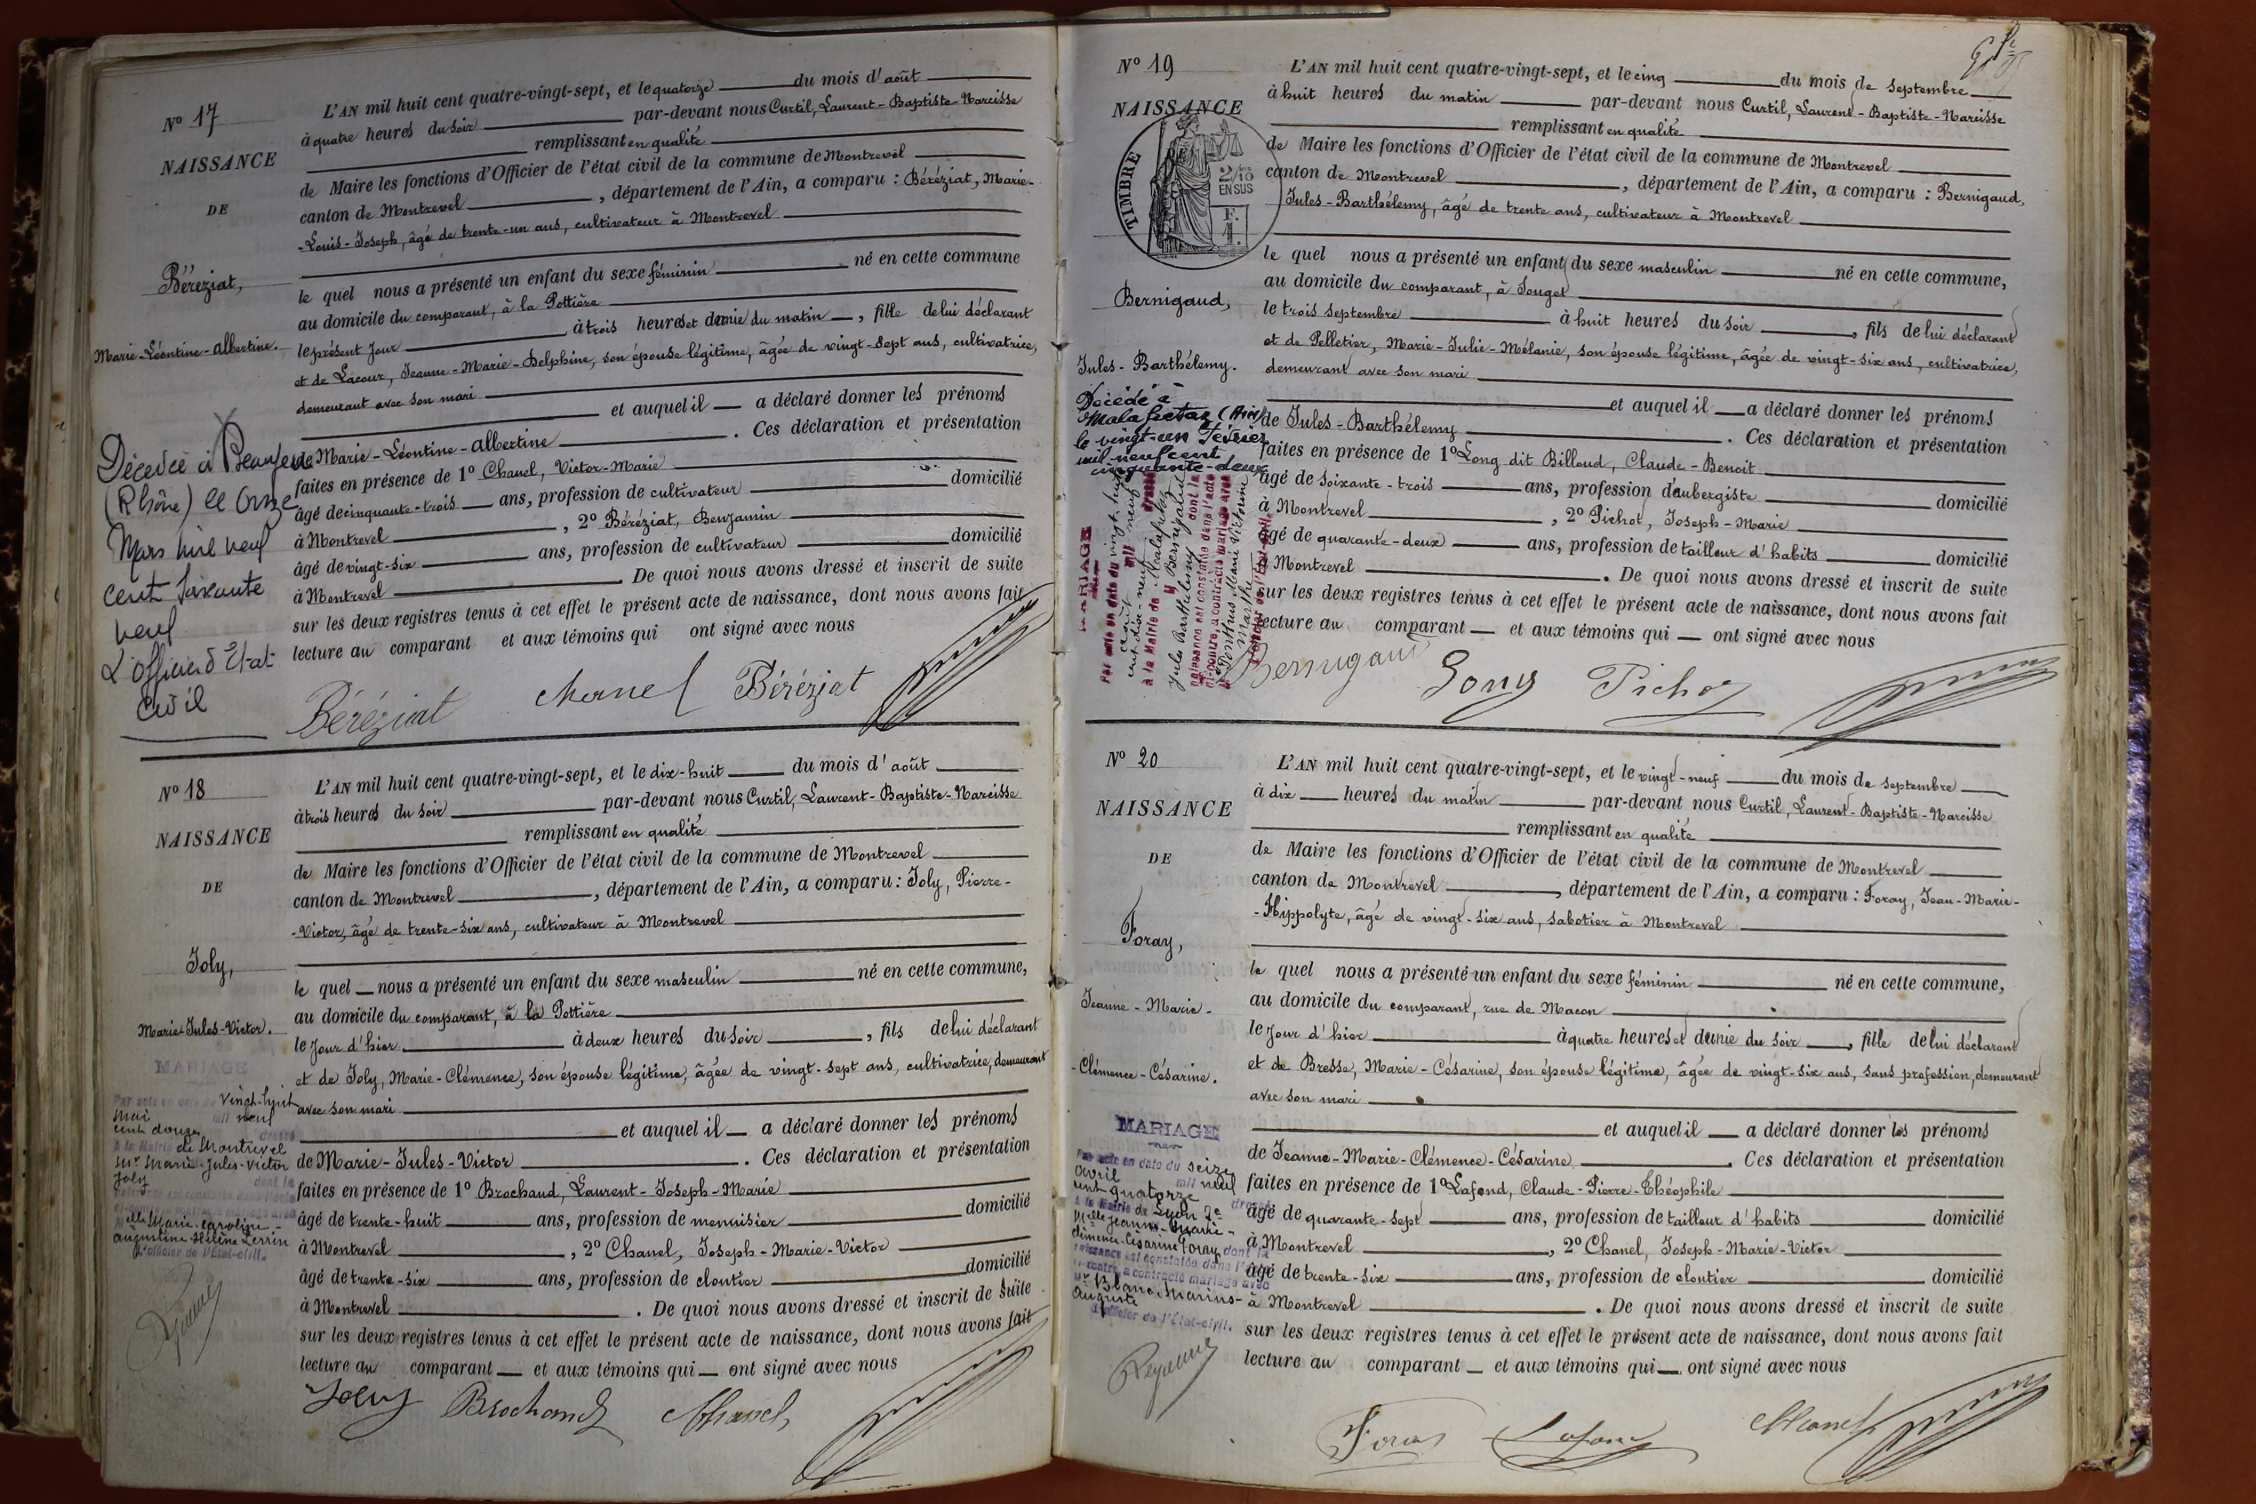 Nº 17
NAISSANCE
DE
Béréziat,
Marie-Léontine-Albertine.
Décédée à Beaujeu
(Rhône) le onze
Mars mil neuf
cent soixante
neuf
L'officier d'Etat
Civil
L'AN mil huit cent quatre-vingt-sept, et le quatorze du mois d'août
à quatre heures du soir par-devant nous Curtil, Laurent-Baptiste-Narcisse
remplissant en qualité
de Maire les fonctions d'Officier de l'état civil de la commune de Montrevel
canton de Montrevel, département de l'Ain, a comparu : Béréziat, Marie-
-Louis-Joseph, âgé de trente-un ans, cultivateur à Montrevel
le quel nous a présenté un enfant du sexe féminin né en cette commune
au domicile du comparant, à la Pottière
le présent jour à trois heures et demie du matin, fille de lui déclarant
et de Lacour, Jeanne-Marie-Delphine, son épouse légitime, âgée de vingt-sept ans, cultivatrice,
demeurant avec son mari
et auquel il a déclaré donner les prénoms
de Marie-Léontine-Albertine. Ces déclaration et présentation
faites en présence de 1º Chanel, Victor-Marie
âgé de cinquante-trois ans, profession de cultivateur domicilié
à Montrevel, 2º Béréziat, Benjamin
âgé de vingt-six ans, profession de cultivateur domicilié
à Montrevel. De quoi nous avons dressé et inscrit de suite
sur les deux registres tenus à cet effet le présent acte de naissance, dont nous avons fait
lecture au comparant et aux témoins qui ont signé avec nous
Béréziat Chanel Béréziat
Nº 18
NAISSANCE
DE
Joly,
Marie-Jules-Victor.
MARIAGE
Par acte en date du vingt-huit
mai mil neuf
cent douze dressé
à la Mairie de Montrevel
Mr Marie-Jules-Victor
Joly dont la
naissance est constatée dans l'acte
Melle Marie-Caroline-
Augustine-Hélène Perrin
L'officier de l'Etat-civil.
L'AN mil huit cent quatre-vingt-sept, et le dix-huit du mois d'août
à trois heures du soir par-devant nous Curtil, Laurent-Baptiste-Narcisse
remplissant en qualité
de Maire les fonctions d'Officier de l'état civil de la commune de Montrevel
canton de Montrevel, département de l'Ain, a comparu : Joly, Pierre-
-Victor, âgé de trente-six ans, cultivateur à Montrevel
le quel nous a présenté un enfant du sexe masculin né en cette commune,
au domicile du comparant, à la Pottière
le jour d'hier à deux heures du soir, fils de lui déclarant
et de Joly, Marie-Clémence, son épouse légitime, âgée de vingt-sept ans, cultivatrice, demeurant
avec son mari
et auquel il a déclaré donner les prénoms
de Marie-Jules-Victor. Ces déclaration et présentation
faites en présence de 1º Brochand, Laurent-Joseph-Marie
âgé de trente-huit ans, profession de menuisier domicilié
à Montrevel, 2º Chanel, Joseph-Marie-Victor
âgé de trente-six ans, profession de cloutier domicilié
à Montrevel. De quoi nous avons dressé et inscrit de suite
sur les deux registres tenus à cet effet le présent acte de naissance, dont nous avons fait
lecture au comparant et aux témoins qui ont signé avec nous
Joly Brochand Chanel
Nº 19
NAISSANCE
TIMBRE
2/10 EN SUS
F. 1.
Bernigaud,
Jules-Barthélemy.
Décédé à
Malafretaz (Ain)
le vingt-un Février
mil neuf cent
cinquante-deux
MARIAGE
Par acte en date du vingt-huit
mil neuf
cent dix-neuf dressé
à la Mairie de Malafretaz
M Bernigaud
Jules Barthélemy dont la
naissance est constatée dans l'acte
ci-contre, a contracté mariage avec
Ponthus Marie Victorine
Marthe
L'officier de l'Etat-civil.
L'AN mil huit cent quatre-vingt-sept, et le cinq du mois de septembre
à huit heures du matin par-devant nous Curtil, Laurent-Baptiste-Narcisse
remplissant en qualité
de Maire les fonctions d'Officier de l'état civil de la commune de Montrevel
canton de Montrevel, département de l'Ain, a comparu : Bernigaud,
Jules-Barthélemy, âgé de trente ans, cultivateur à Montrevel
le quel nous a présenté un enfant du sexe masculin né en cette commune,
au domicile du comparant, à Jouget
le trois septembre à huit heures du soir, fils de lui déclarant
et de Pelletier, Marie-Julie-Mélanie, son épouse légitime, âgée de vingt-six ans, cultivatrice,
demeurant avec son mari
et auquel il a déclaré donner les prénoms
de Jules-Barthélemy. Ces déclaration et présentation
faites en présence de 1º Long dit Billoud, Claude-Benoit
âgé de soixante-trois ans, profession d'aubergiste domicilié
à Montrevel, 2º Pichot, Joseph-Marie
âgé de quarante-deux ans, profession de tailleur d'habits domicilié
à Montrevel. De quoi nous avons dressé et inscrit de suite
sur les deux registres tenus à cet effet le présent acte de naissance, dont nous avons fait
lecture au comparant et aux témoins qui ont signé avec nous
Bernigaud Long Pichot
Nº 20
NAISSANCE
DE
Foray,
Jeanne-Marie-
-Clémence-Césarine.
MARIAGE
Par acte en date du seize
avril mil neuf
cent quatorze dressé
à la Mairie de Lyon 2e
Melle Jeanne-Marie-
Clémence-Césarine Foray dont la
naissance est constatée dans l'acte
ci-contre, a contracté mariage avec
Mr Blanc, Marius-
Auguste
L'officier de l'Etat-civil.
L'AN mil huit cent quatre-vingt-sept, et le vingt-neuf du mois de septembre
à dix heures du matin par-devant nous Curtil, Laurent-Baptiste-Narcisse
remplissant en qualité
de Maire les fonctions d'Officier de l'état civil de la commune de Montrevel
canton de Montrevel, département de l'Ain, a comparu : Foray, Jean-Marie-
-Hippolyte, âgé de vingt-six ans, sabotier à Montrevel
le quel nous a présenté un enfant du sexe féminin né en cette commune,
au domicile du comparant, rue de Macon
le jour d'hier à quatre heures et demie du soir, fille de lui déclarant
et de Bresse, Marie-Césarine, son épouse légitime, âgée de vingt-six ans, sans profession, demeurant
avec son mari
et auquel il a déclaré donner les prénoms
de Jeanne-Marie-Clémence-Césarine. Ces déclaration et présentation
faites en présence de 1º Lafond, Claude-Pierre-Théophile
âgé de quarante-sept ans, profession de tailleur d'habits domicilié
à Montrevel, 2º Chanel, Joseph-Marie-Victor
âgé de trente-six ans, profession de cloutier domicilié
à Montrevel. De quoi nous avons dressé et inscrit de suite
sur les deux registres tenus à cet effet le présent acte de naissance, dont nous avons fait
lecture au comparant et aux témoins qui ont signé avec nous
Foray Lafond Chanel